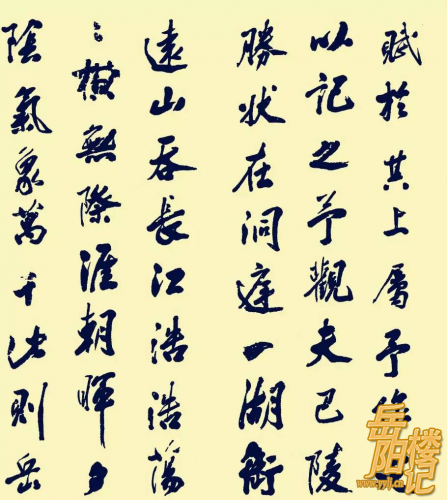 賦於其上屬予作
以記之予觀夫巴陵
勝狀在洞庭一湖銜
遠山吞長江浩浩蕩
々橫無際涯朝暉夕
陰氣象萬千此則岳
岳阳楼记